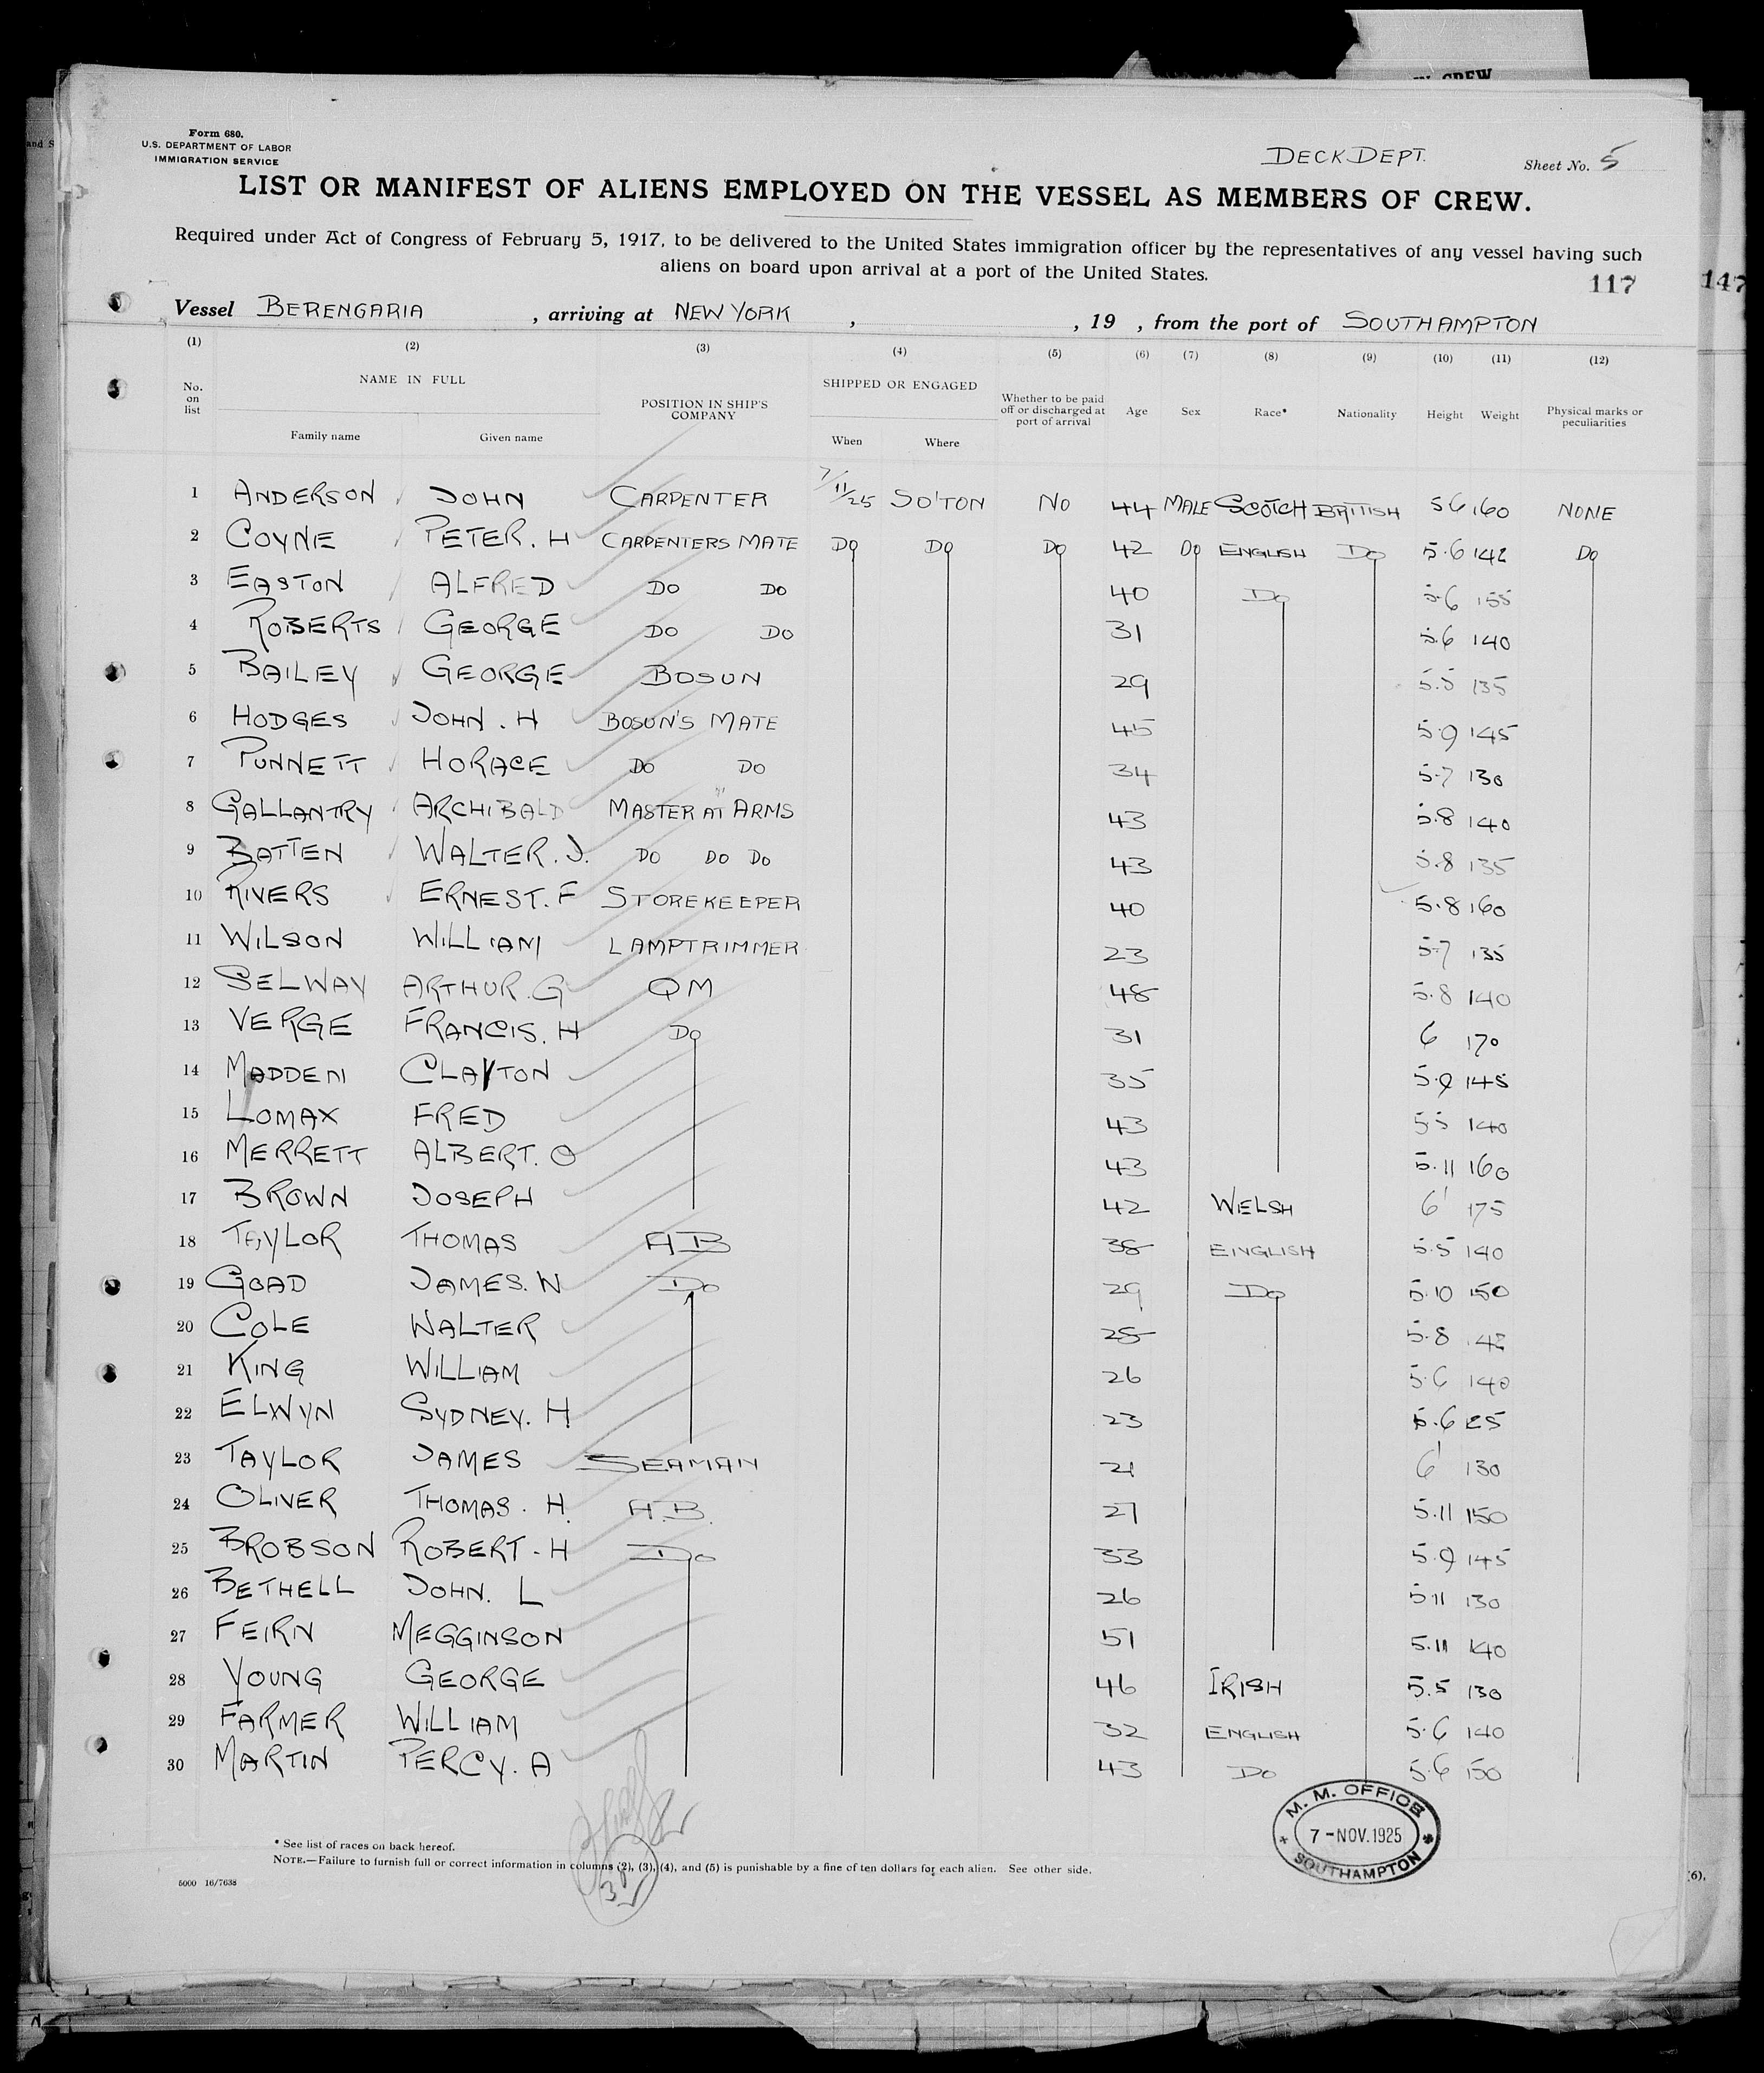 Form 680.
U.S. DEPARTMENT OF LABOR
IMMIGRATION SERVICE
DECK DEPT.
Sheet No. 5
LIST OR MANIFEST OF ALIENS EMPLOYED ON THE VESSEL AS MEMBERS OF CREW.
Required under Act of Congress of February 5, 1917, to be delivered to the United States immigration officer by the representatives of any vessel having such
aliens on board upon arrival at a port of the United States.
117
147
Vessel BERENGARIA , arriving at NEW YORK , , 19 , from the port of SOUTHAMPTON
(1) (2) (3) (4) (5) (6) (7) (8) (9) (10) (11) (12)
No. on list NAME IN FULL Family name Given name POSITION IN SHIP'S COMPANY SHIPPED OR ENGAGED When Where Whether to be paid off or discharged at port of arrival Age Sex Race* Nationality Height Weight Physical marks or peculiarities
1 ANDERSON JOHN CARPENTER 7/11/25 SO'TON NO 44 MALE SCOTCH BRITISH 5 6 160 NONE
2 COYNE PETER. H CARPENTERS MATE DO DO DO 42 DO ENGLISH DO 5.6 142 DO
3 EASTON ALFRED DO DO 40 DO 5.6 155
4 ROBERTS GEORGE DO DO 31 5.6 140
5 BAILEY GEORGE BOSUN 29 5.5 135
6 HODGES JOHN. H BOSUN'S MATE 45 5.9 145
7 PUNNETT HORACE DO DO 34 5.7 130
8 GALLANTRY ARCHIBALD MASTER AT ARMS 43 5.8 140
9 BATTEN WALTER. J. DO DO DO 43 5.8 135
10 RIVERS ERNEST. F STOREKEEPER 40 5.8 160
11 WILSON WILLIAM LAMPTRIMMER 23 5.7 135
12 SELWAY ARTHUR. G QM 48 5.8 140
13 VERGE FRANCIS. H DO 31 6 170
14 MADDEN CLAYTON 35 5.9 145
15 LOMAX FRED 43 5.5 140
16 MERRETT ALBERT. O 43 5.11 160
17 BROWN JOSEPH 42 WELSH 6' 175
18 TAYLOR THOMAS AB 38 ENGLISH 5.5 140
19 GOAD JAMES. W DO 29 DO 5.10 150
20 COLE WALTER 28 5.8
21 KING WILLIAM 26 5.6 140
22 ELWYN SYDNEY. H 23 5.6 125
23 TAYLOR JAMES SEAMAN 21 6' 130
24 OLIVER THOMAS. H. A.B. 27 5.11 150
25 BROBSON ROBERT. H DO 33 5.9 145
26 BETHELL JOHN. L 26 5 11 130
27 FEIRN MEGGINSON 51 5.11 140
28 YOUNG GEORGE 46 IRISH 5.5 130
29 FARMER WILLIAM 32 ENGLISH 5.6 140
30 MARTIN PERCY. A 43 DO 5.6 150
M. M. OFFICE
7-NOV.1925
SOUTHAMPTON
* See list of races on back hereof.
NOTE.—Failure to furnish full or correct information in columns (2), (3), (4), and (5) is punishable by a fine of ten dollars for each alien. See other side.
5000 16/7638
(6).